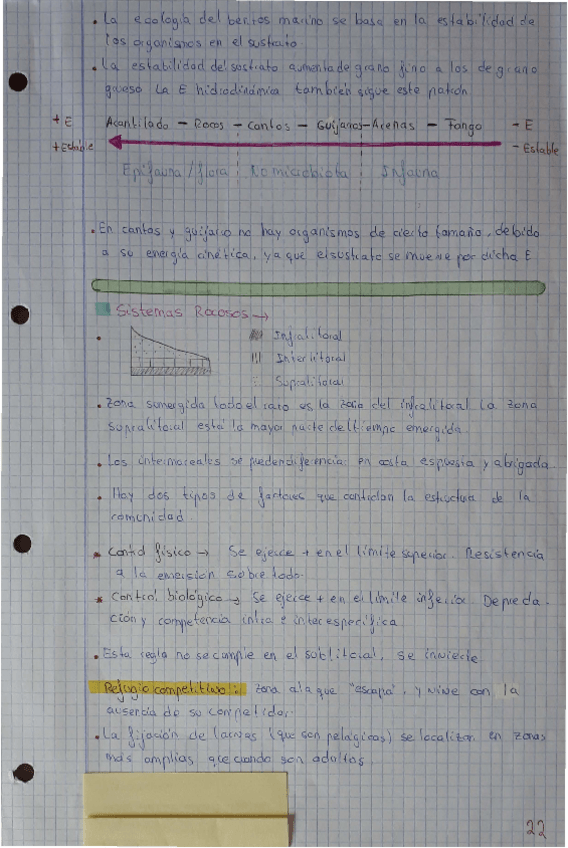 . La ecología del bentos marino se basa en la estabilidad de
los organismos en el sustrato
. La estabilidad del sustrato aumenta de grano fino a los de grano
gueso La E hidrodinámia también sigue este patrón
+ E Acantilado - Rocas - Cantos - Guijarros - Arenas - Fango - E
+ Estable - Estable
Epifauna / flora No microbiota Infauna
. En cantos y guijarro no hay organismos de cierto tamaño, debido
a su energía cinética, ya que el sustrato se mueve por dicha E
Sistemas Rocosos →
Infralitoral
Interlitoral
Supralitoral
. Zona sumergida todo el rato es la zona del infralitoral La zona
supralitoral está la mayor parte del tiempo emergida.
. Los intermareales se pueden diferencia en costa espuesta y abrigada
. Hay dos tipos de factores que controlan la estructura de la
comunidad.
* Contol físico → Se ejerce + en el límite superior. Resistencia
a la emersión sobretodo.
* Control biológico → Se ejerce + en el límite inferior. Depreda-
ción y competencia intra e interespecífica
. Esta regla no se cumple en el sublitoral, se invierte
Refugio competitivo: zona a la que "escapa", y vive con la
ausencia de su competidor.
. La fijación de larvas (que son pelágicas) se localizan en zonas
más amplias que cuando son adultos
22